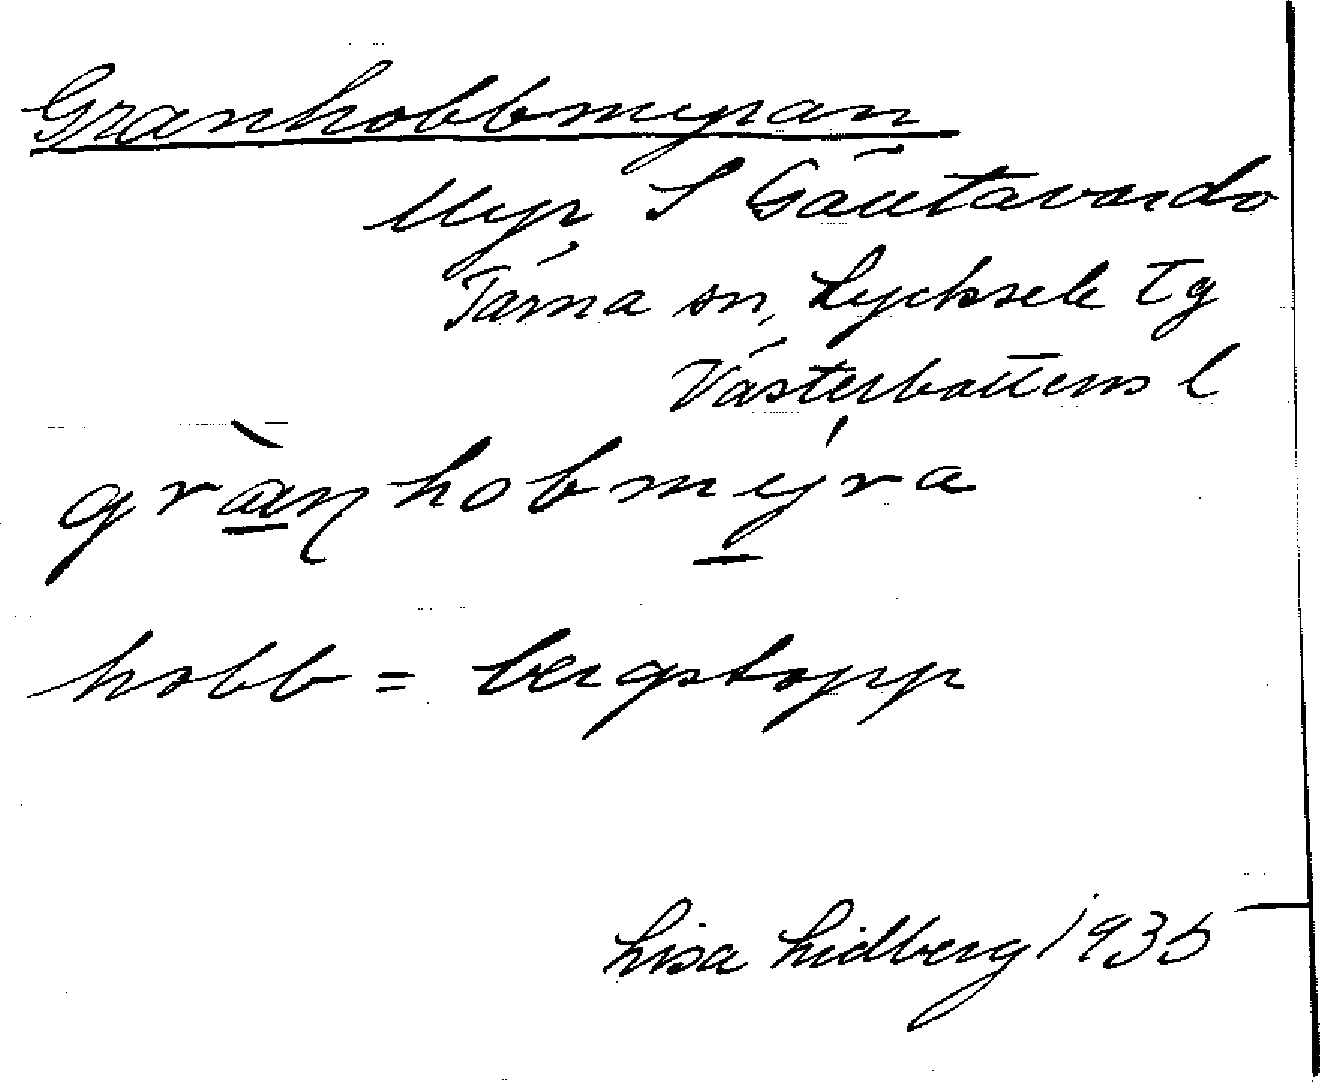 Granhobbmyran
Myr S Gäutavardo
Tärna sn, Lycksele tg
Västerbottens l
grànhobmýra
hobb = bergstopp
Lisa Lidberg 1935